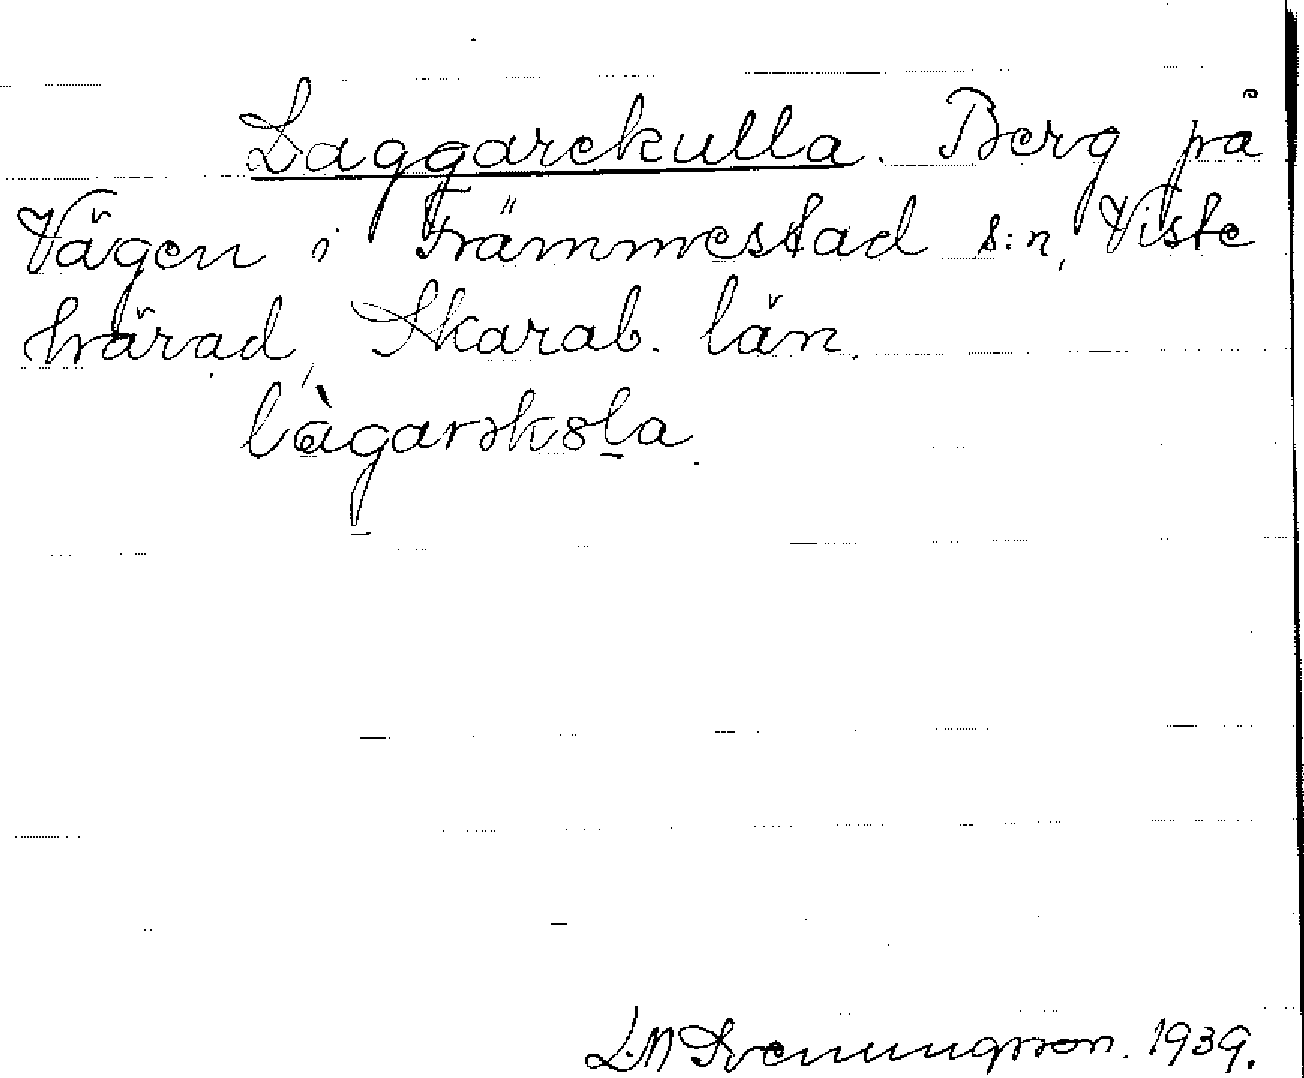 Laggarekulla. Berg på
Vägen i Främmestad s:n, Viste
härad, Skarab. län.
làgarək8la.
L.M. Svenungsson. 1939.